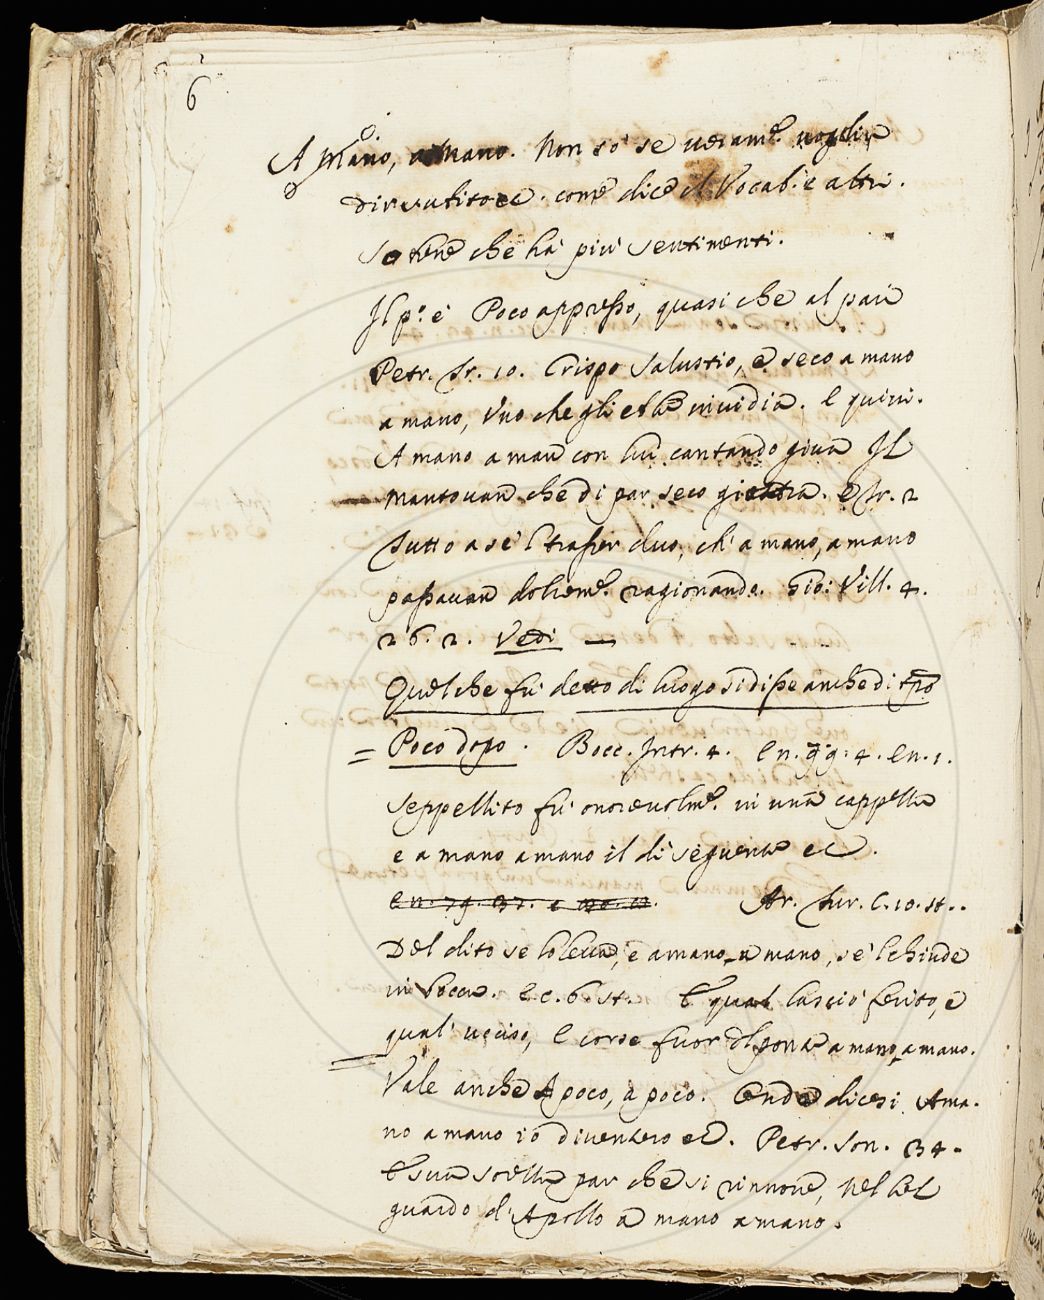 6
A Mano, a Mano. Non so se ueram.e voglia
dir subito ec. come dice il Vocab. e altri.
So bene che ha più sentimenti.
Il p.o è Poco appresso, quasi che al pari
Petr. Tr. 10. Crispo Salustio, e seco a mano
a mano, Uno che gli ebbe inuidia. E quiui.
A mano a man con lui cantando giua Il
Mantouan che di par seco giostra. e Tr. 2
Tutto a se 'l trasser duo, ch' a mano, a mano
passauan dolcem.e ragionando. Gio: Vill. 4.
26. 2. Vedi —
Quel che fù detto di luogo si disse anche di tpo
= Poco dopo. Bocc. Intr. 4. e n. gg. 4. e n. 1.
Seppellito fù onoreuolm.e in una cappella
e a mano a mano il dì seguente ec.
e n. 79. 37. Ar. Fur. C. 10. st..
Del dito se lo leua, e a mano, a mano, se 'l chiude
in bocca. e c. 6 st. E qual lasciò ferito, e
qual' ucciso, E corse fuor del ponte a mano, a mano.
= Vale anche A poco, a poco. Onde dicesi A ma-
no a mano io diuentero ec. Petr. Son. 34.
E sua sorella par che si rinnoue, Nel bel
guardo d' Apollo a mano a mano.